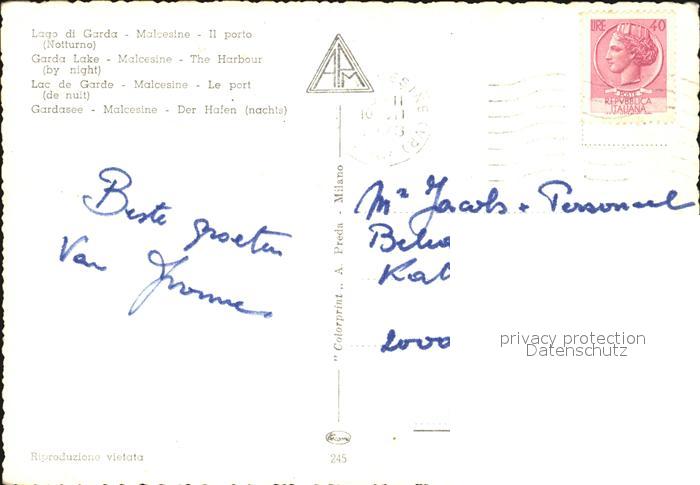 Lago di Garda - Malcesine - Il porto
(Notturno)
Garda Lake - Malcesine - The Harbour
(by night)
Lac de Garde - Malcesine - Le port
(de nuit)
Gardasee - Malcesine - Der Hafen (nachts)
Beste groeten
Van Yvonne
Riproduzione vietata
"Colorprint„ A. Preda - Milano
245
LIRE 40
POSTE
REPVBBLICA
ITALIANA
Mr Jacobs + Personeel
2000
privacy protection
Datenschutz